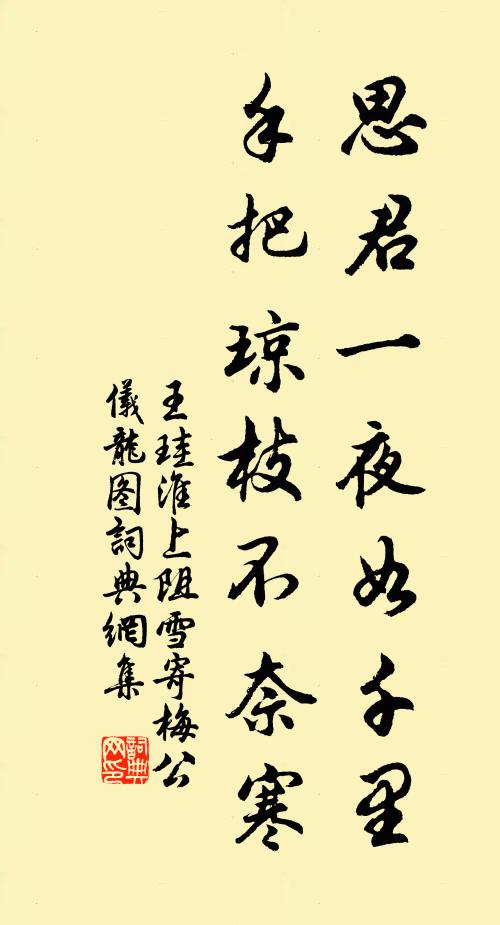 思君一夜如千里
手把琼枝不奈寒
王珪淮上阻雪寄梅公
儀龍图詞典網集
詞典
网印